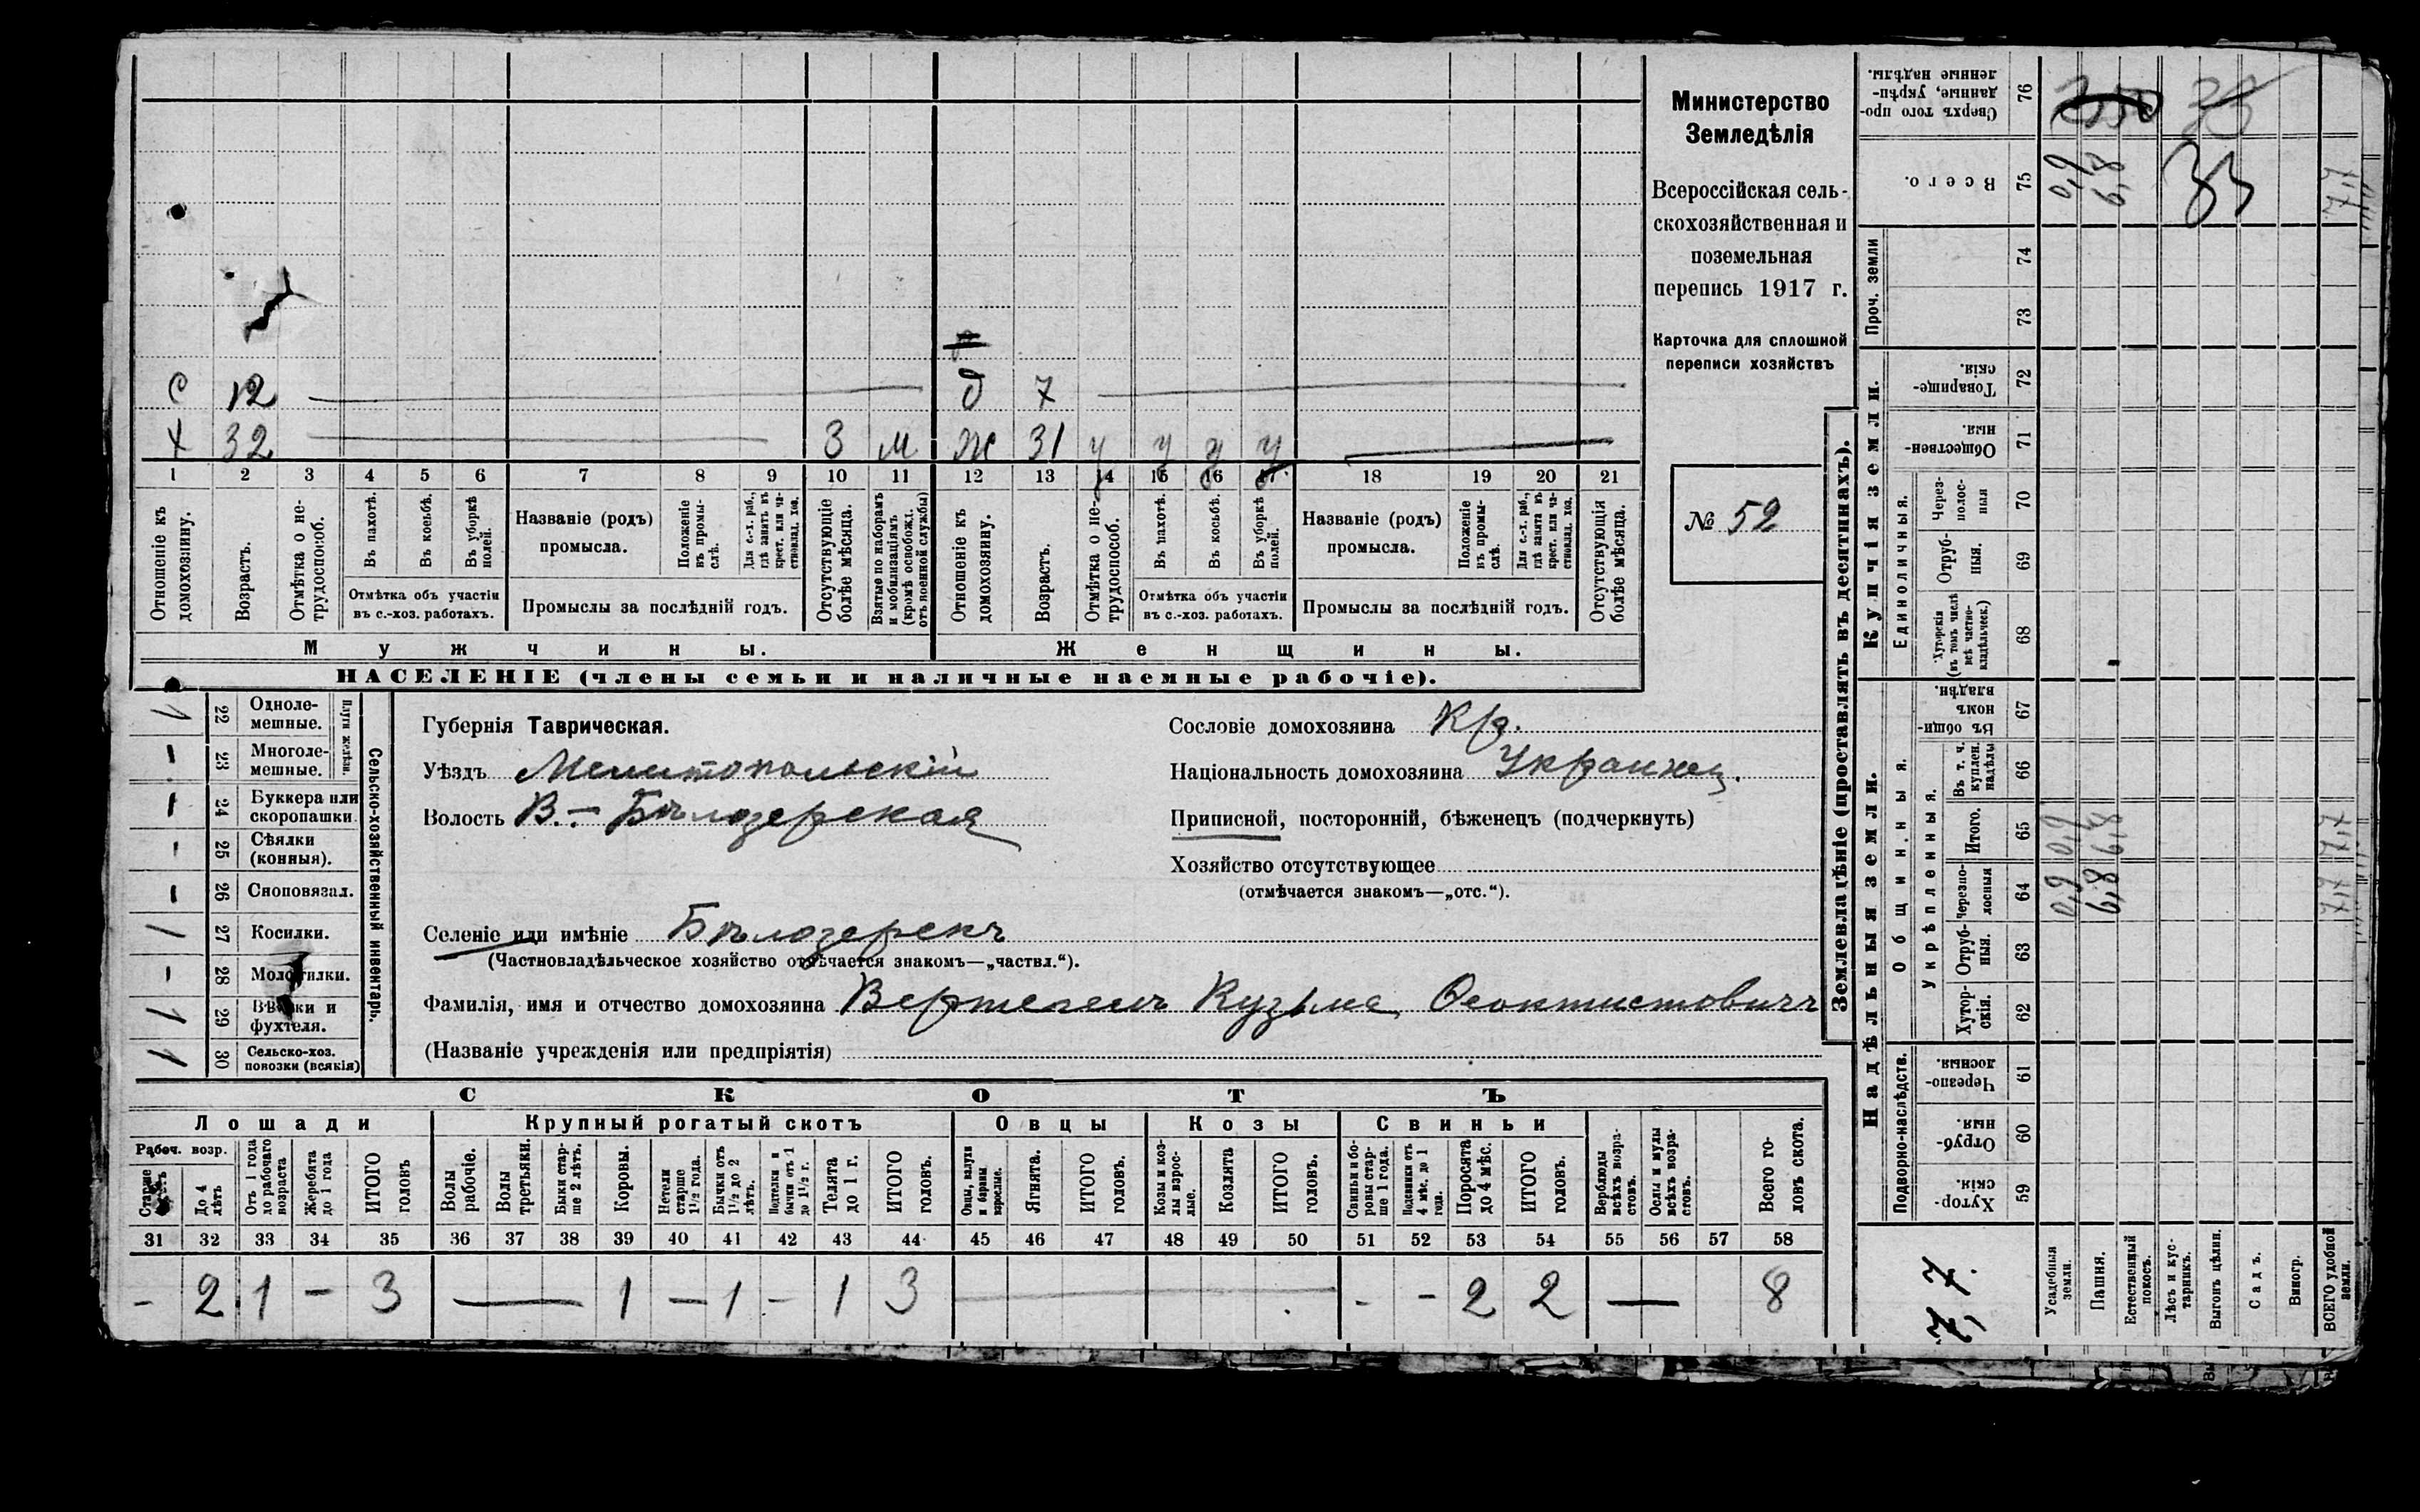 Министерство
Земледѣлія
Всероссійская сель-
скохозяйственная и
поземельная
перепись 1917 г.
Карточка для сплошной
переписи хозяйствъ
№ 52
с 12 д 7
х 32 3 м ж 31 у у у у
1 2 3 4 5 6 7 8 9 10 11 12 13 14 15 16 17 18 19 20 21
Отношеніе къ домохозяину.
Возрастъ.
Отмѣтка о не-трудоспособ.
Въ пахотѣ.
Въ косьбѣ.
Въ уборкѣ полей.
Отмѣтка объ участіи
въ с.-хоз. работахъ.
Названіе (родъ)
промысла.
Положеніе въ промы-слѣ.
Для с.-х. раб., гдѣ занятъ въ крест. или ча-стновлад. хоз.
Промыслы за послѣдній годъ.
Отсутствующіе болѣе мѣсяца.
Взятые по наборамъ и мобилизаціямъ (кромѣ освобожд. отъ военной службы)
Отношеніе къ домохозяину.
Возрастъ.
Отмѣтка о не-трудоспособ.
Въ пахотѣ.
Въ косьбѣ.
Въ уборкѣ полей.
Отмѣтка объ участіи
въ с.-хоз. работахъ.
Названіе (родъ)
промысла.
Положеніе въ промы-слѣ.
Для с.-х. раб., гдѣ занятъ въ крест. или ча-стновлад. хоз.
Промыслы за послѣдній годъ.
Отсутствующія болѣе мѣсяца.
Мужчины. Женщины.
НАСЕЛЕНІЕ (члены семьи и наличные наемные рабочіе).
Сельско-хозяйственный инвентарь.
Плуги желѣзн.
1 22 Одноле-мешные.
- 23 Многоле-мешные.
- 24 Буккера или скоропашки
- 25 Сѣялки (конныя).
- 26 Сноповязал.
/ 27 Косилки.
- 28 Молотилки.
1 29 Вѣялки и фухтеля.
1 30 Сельско-хоз. повозки (всякія)
Губернія Таврическая.
Уѣздъ Мелитопольскій
Волость В.-Бѣлозерская
Селеніе или имѣніе Бѣлозерскъ
(Частновладѣльческое хозяйство отмѣчается знакомъ—„частвл.“).
Фамилія, имя и отчество домохозяина Вертелецъ Кузьма Ѳеоктистовичъ
(Названіе учрежденія или предпріятія)
Сословіе домохозяина Кр.
Національность домохозяина Украинец.
Приписной, посторонній, бѣженец (подчеркнуть)
Хозяйство отсутствующее
(отмѣчается знакомъ—„отс.“).
СКОТЪ
Лошади Крупный рогатый скотъ Овцы Козы Свиньи
Рабоч. возр.
Старше
До 4 лѣтъ
Отъ 1 года до рабочаго возраста
Жеребята до 1 года
ИТОГО головъ
Волы рабочіе.
Волы третьяки.
Быки стар-ше 2 лѣтъ.
Коровы.
Нетели старше 1½ года.
Бычки отъ 1½ до 2 лѣтъ.
Подтелки и бычки отъ 1 до 1½ г.
Телята до 1 г.
ИТОГО головъ.
Овцы, валухи и бараны взрослые.
Ягнята.
ИТОГО головъ.
Козы и коз-лы взрос-лые.
Козлята
ИТОГО головъ.
Свиньи и бо-ровы стар-ше 1 года.
Подсвинки отъ 4 мѣс. до 1 года.
Поросята до 4 мѣс.
ИТОГО головъ.
Верблюды всѣхъ возра-стовъ.
Ослы и мулы всѣхъ возра-стовъ.
Всего го-ловъ скота.
31 32 33 34 35 36 37 38 39 40 41 42 43 44 45 46 47 48 49 50 51 52 53 54 55 56 57 58
- 2 1 - 3 — 1 — 1 - 1 3 — - - 2 2 — 8
Землевладѣніе (проставлять въ десятинахъ).
Надѣльныя земли.
Купчія земли.
Проч. земли
Подворно-наслѣдств.
Общинныя.
Укрѣпленныя.
Единоличныя.
76 Сверхъ того про-данные, укрѣп-ленные надѣлы.
75 Всего. 0,9 6,8 33 7,7
74
73
72 Товарище-скія.
71 Обществен-ныя.
70 Через-полос-ныя
69 Отруб-ныя.
68 Хуторскія (въ томъ числѣ всѣ частно-владѣльческ.)
67 Въ общи-номъ владѣн.
66 Въ т. ч. куплен. надѣлы
65 Итого. 0,9 6,8 7,7
64 Черезпо-лосныя 0,9 6,8 7,7
63 Отруб-ныя.
62 Хутор-скія.
61 Черезпо-лосныя.
60 Отруб-ныя.
59 Хутор-скія.
7,7.
Усадебныя земли.
Пашня.
Естественный покосъ.
Лѣсъ и кус-тарникъ.
Выгонъ цѣлин.
Садъ.
Виногр.
ВСЕГО удобной земли.